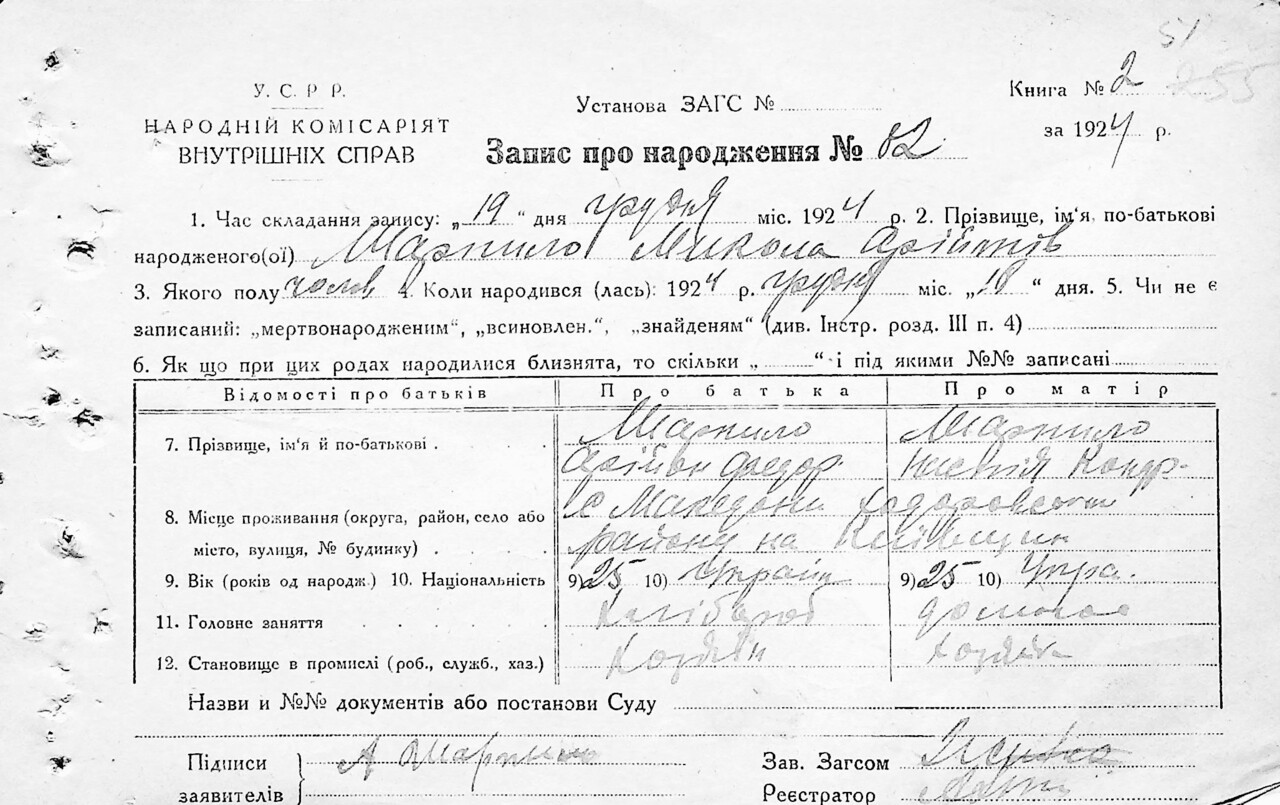 51
255
У. С. Р. Р.
НАРОДНІЙ КОМІСАРІЯТ
ВНУТРІШНІХ СПРАВ
Установа ЗАГС №
Книга № 2
за 1924 р.
Запис про народження № 82
1. Час складання запису: „19“ дня грудня міс. 1924 р. 2. Прізвище, ім'я, по-батькові
народженого(ої) Микола
3. Якого полу чолов 4. Коли народився (лась): 1924 р. грудня міс. „18“ дня. 5. Чи не є
записаний: „мертвонародженим“, „всиновлен.“, „знайденям“ (див. Інстр. розд. III п. 4)
6. Як що при цих родах народилися близнята, то скільки „ “ і під якими №№ записані
Відомості про батьків Про батька Про матір
7. Прізвище, ім'я й по-батькові
Федор.
8. Місце проживання (округа, район, село або с Македони
місто, вулиця, № будинку) району на Київщин
9. Вік (років од народж.) 10. Національність 9) 25 10) Україн 9) 25 10) Укра.
11. Головне заняття
12. Становище в промислі (роб., служб., хаз.)
Назви и №№ документів або постанови Суду
Підписи А
заявителів
Зав. Загсом
Реєстратор